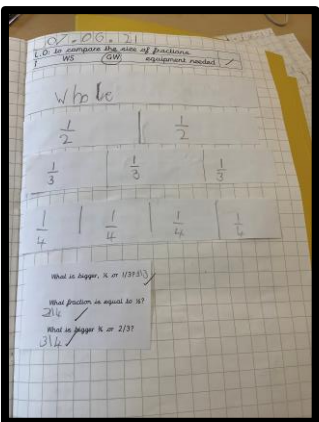 07.06.21
L.O: to compare the size of fractions
I WS GW equipment needed
Whole
1/2 1/2
1/3 1/3 1/3
1/4 1/4 1/4 1/4
What is bigger, ¼ or 1/3? 1\3
What fraction is equal to ½?
2\4
What is bigger ¾ or 2/3?
3\4